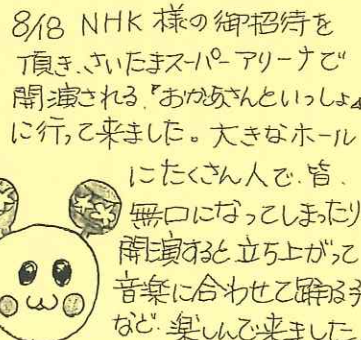 8/18 NHK 様の御招待を
頂き、さいたまスーパーアリーナで
開演される『おかあさんといっしょ』
に行って来ました。大きなホール
にたくさん人で、皆、
無口になってしまったり
開演すると立ち上がって
音楽に合わせて踊る子
など、楽しんで来ました